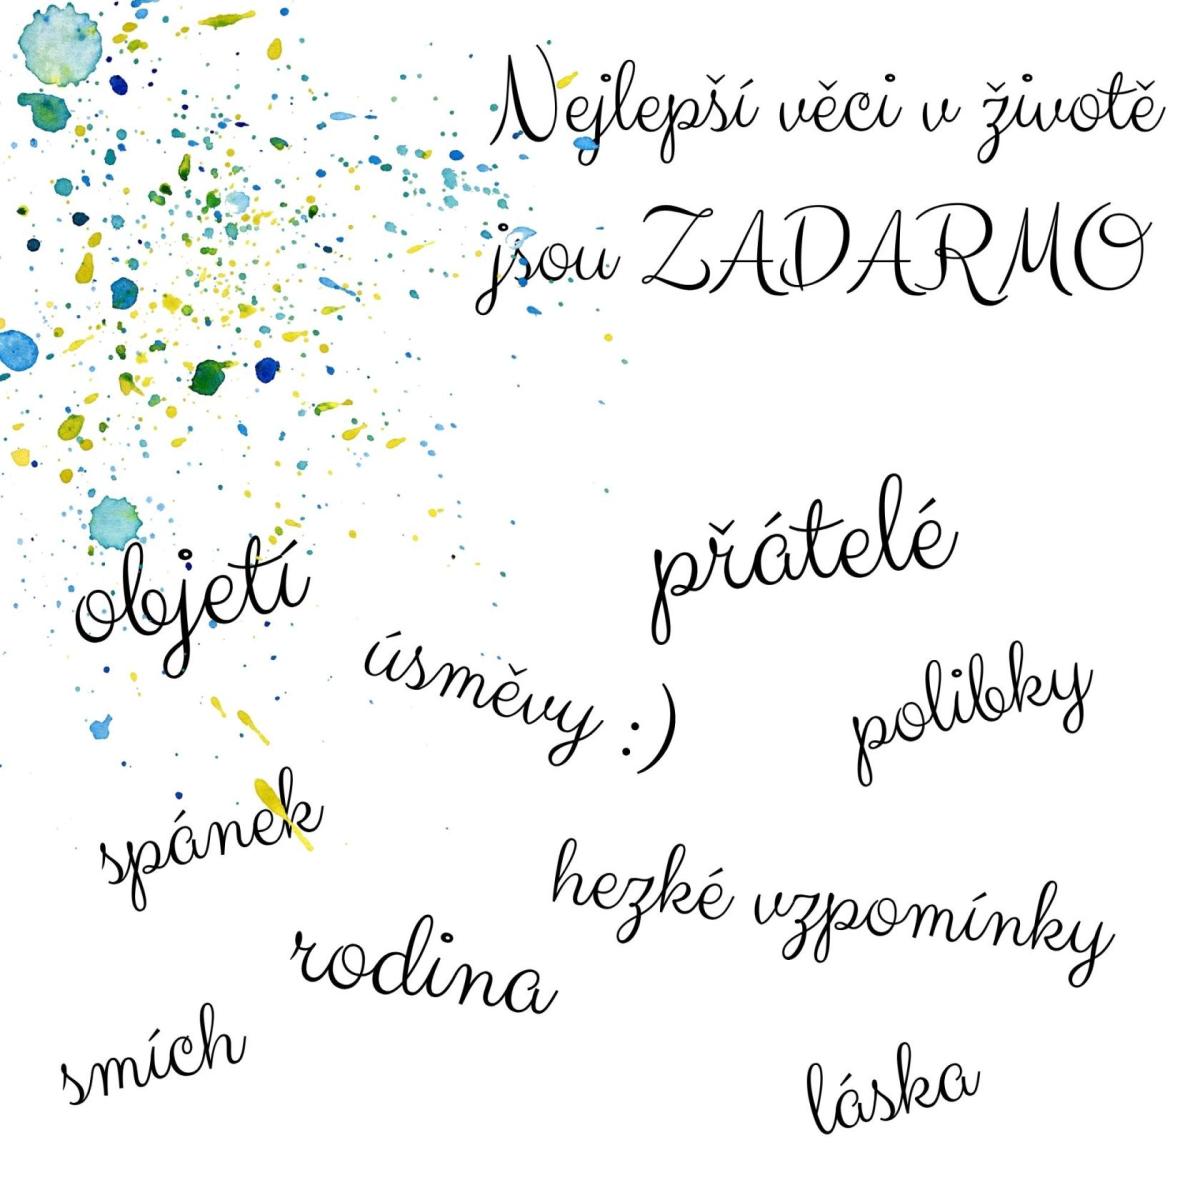 Nejlepší věci v životě
jsou ZADARMO
přátelé
objetí
úsměvy :)
polibky
spánek
hezké vzpomínky
rodina
smích
láska